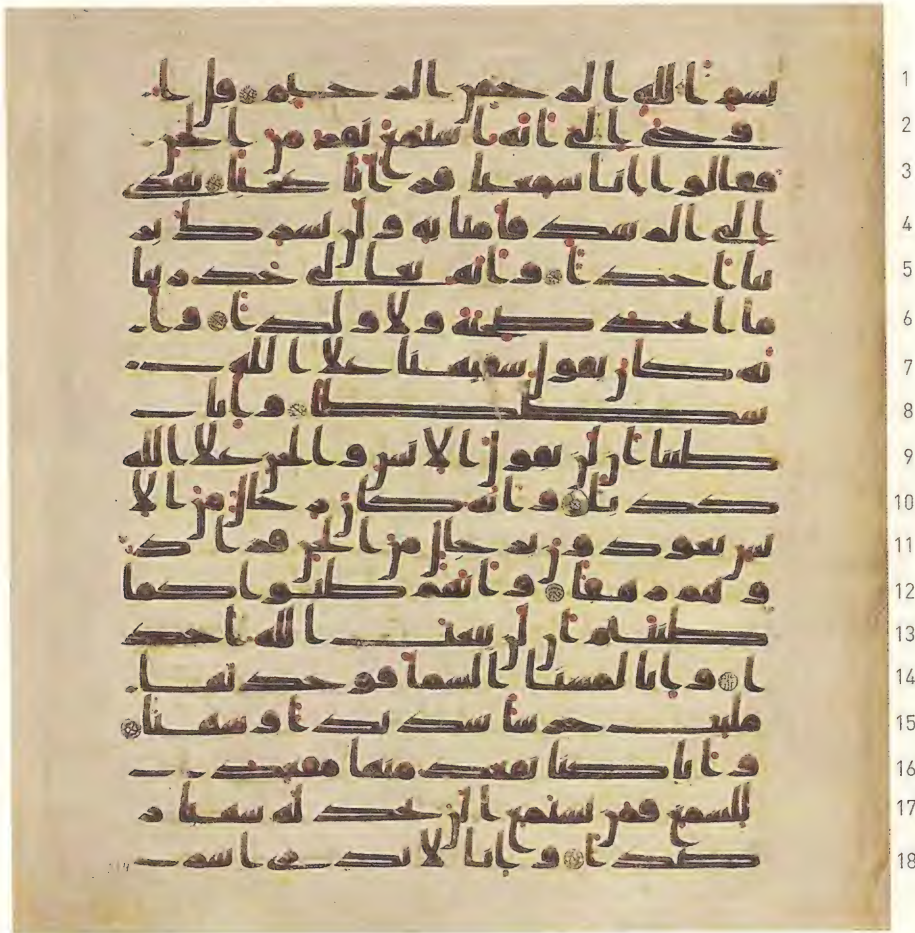 بسم الله الرحمن الرحيم قل ا 1
وحي الى انه استمع نفر من الجن 2
فقالوا انا سمعنا قرانا عجبا يهدى 3
الى الرشد فامنا به ولن نشرك بر 4
بنا احدا وانه تعلى جد ربنا 5
ما اتخذ صحبة ولا ولدا وا 6
نه كان يقول سفيهنا علا الله 7
شططا وانا 8
ظننا ان لن تقول الانس والجن علا الله 9
كذبا وانه كان رجال من الا 10
نس يعوذون برجال من الجن فزاد 11
وهم رهقا وانهم ظنوا كما 12
ظننتم ان لن يبعث الله احد 13
ا وانا لمسنا السما فوجدنها 14
ملئت حرسا شديدا وشهبا 15
وانا كنا نقعد منها مقعد 16
للسمع فمن يستمع الان يجد له شهبا ر 17
صدا وانا لا ندرى اشر 18